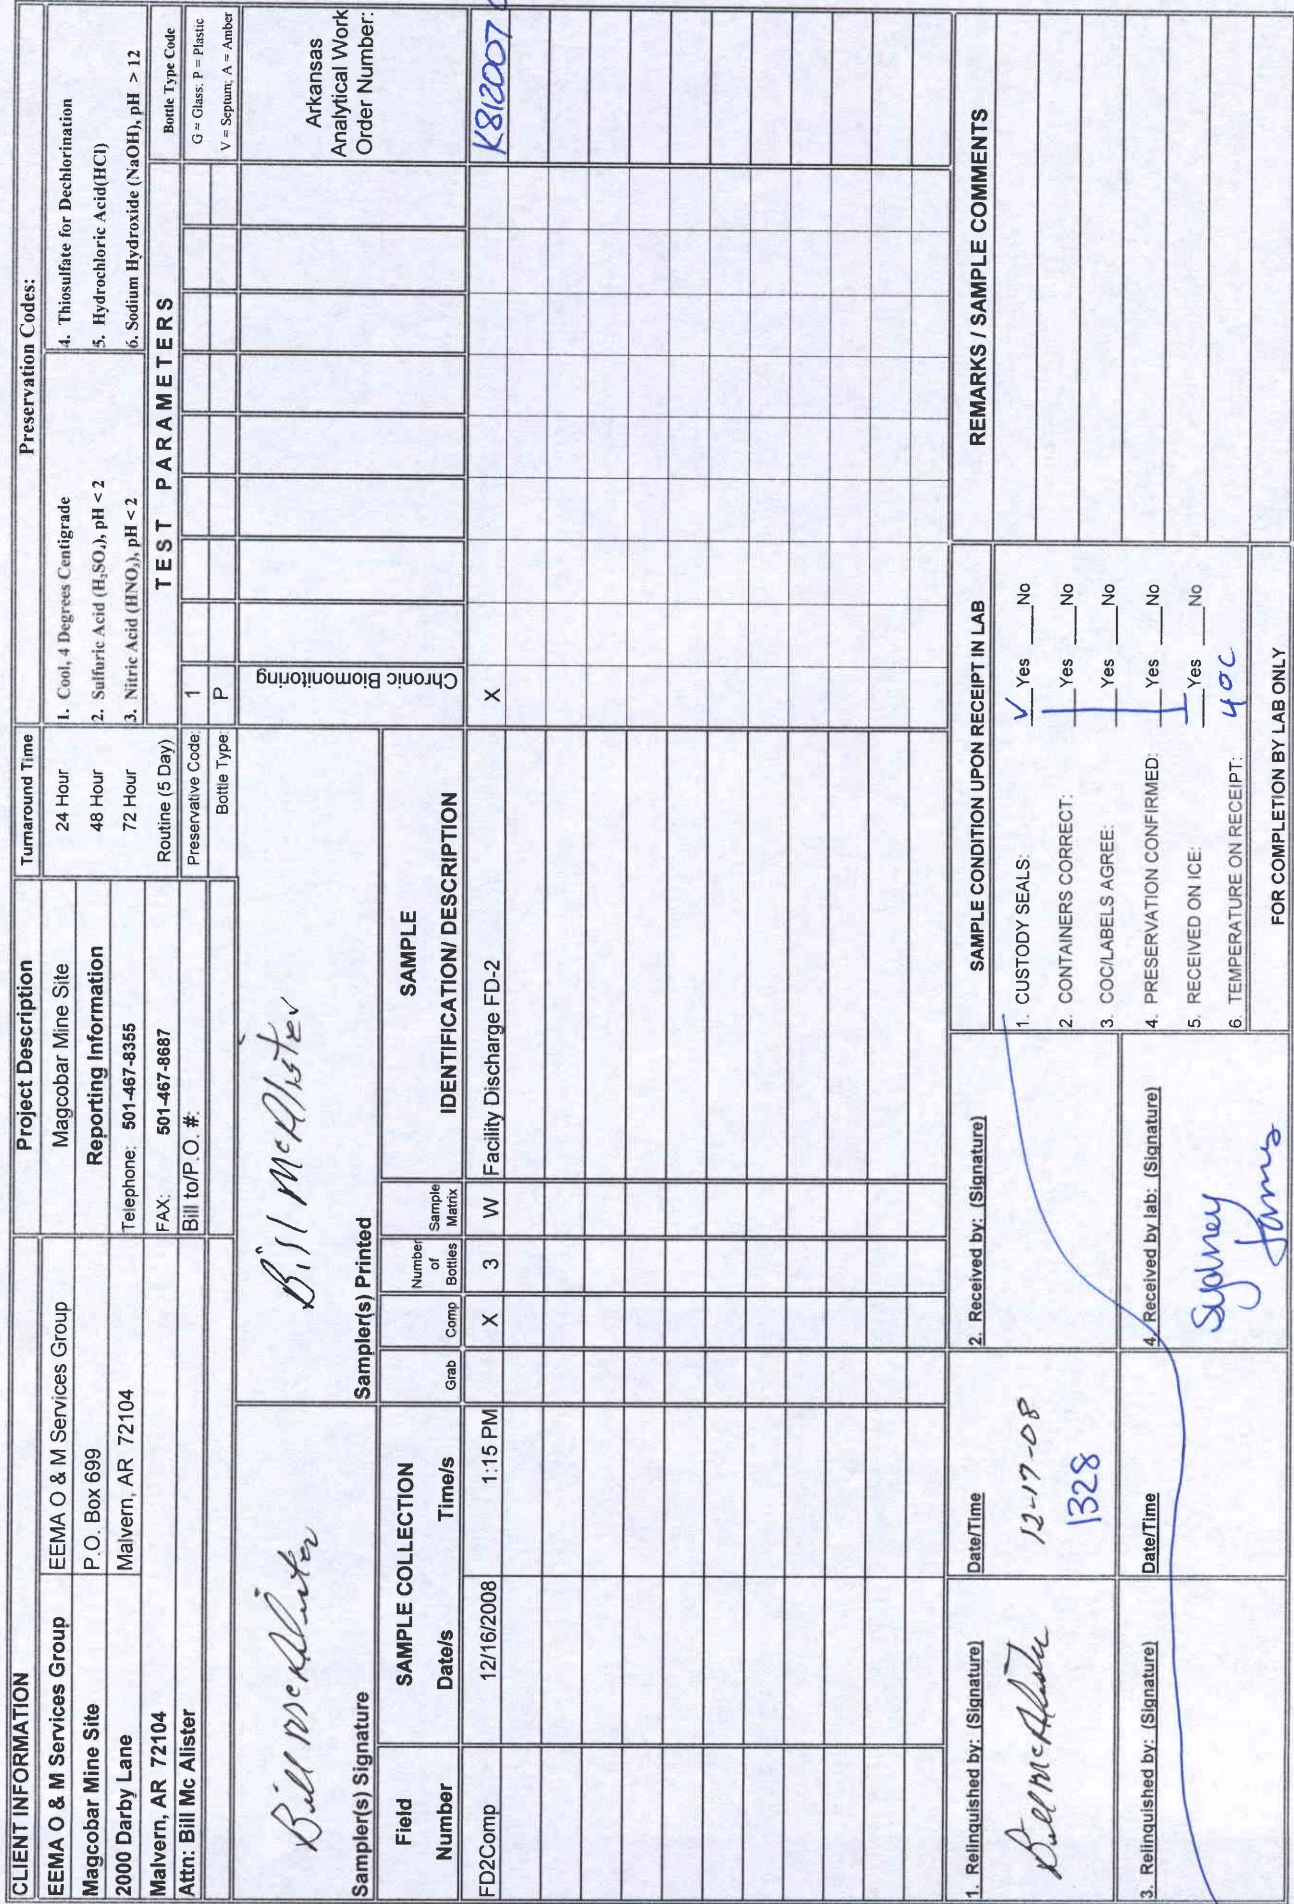 CLIENT INFORMATION
EEMA O & M Services Group
Magcobar Mine Site
2000 Darby Lane
Malvern, AR 72104
Attn: Bill Mc Alister
EEMA O & M Services Group
P.O. Box 699
Malvern, AR 72104
Project Description
Magcobar Mine Site
Reporting Information
Telephone: 501-467-8355
FAX: 501-467-8687
Bill to/P.O. #:
Turnaround Time
24 Hour
48 Hour
72 Hour
Routine (5 Day)
Preservation Codes:
1. Cool, 4 Degrees Centigrade
2. Sulfuric Acid (H₂SO₄), pH < 2
3. Nitric Acid (HNO₃), pH < 2
4. Thiosulfate for Dechlorination
5. Hydrochloric Acid(HCl)
6. Sodium Hydroxide (NaOH), pH > 12
TEST PARAMETERS
Bottle Type Code
G = Glass; P = Plastic
V = Septum; A = Amber
Preservative Code: 1
Bottle Type: P
Bill McAlister
Sampler(s) Signature
Bill McAlister
Sampler(s) Printed
Chronic Biomonitoring
Arkansas
Analytical Work
Order Number:
Field
Number
SAMPLE COLLECTION
Date/s Time/s
Grab
Comp
Number
of
Bottles
Sample
Matrix
SAMPLE
IDENTIFICATION/ DESCRIPTION
FD2Comp 12/16/2008 1:15 PM X 3 W Facility Discharge FD-2 X K812007
1. Relinquished by: (Signature)
Bill McAlister
Date/Time
12-17-08
1328
2. Received by: (Signature)
3. Relinquished by: (Signature)
Date/Time
4. Received by lab: (Signature)
Sydney
James
SAMPLE CONDITION UPON RECEIPT IN LAB
1. CUSTODY SEALS: ✓ Yes ___No
2. CONTAINERS CORRECT: ___ Yes ___No
3. COC/LABELS AGREE: ___ Yes ___No
4. PRESERVATION CONFIRMED: ___ Yes ___No
5. RECEIVED ON ICE: ___ Yes ___No
6. TEMPERATURE ON RECEIPT: 4°C
FOR COMPLETION BY LAB ONLY
REMARKS / SAMPLE COMMENTS